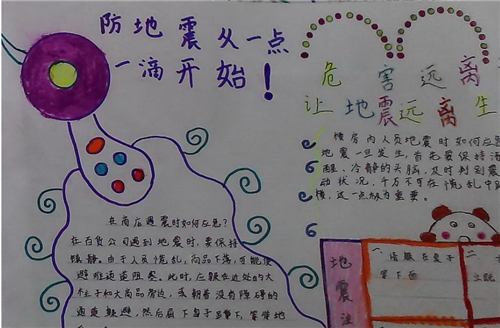 防地震从一点
一滴开始！
危害远离
让地震远离生
楼房内人员地震时如何应急？
地震一旦发生，首先要保持清
醒、冷静的头脑，及时判别震
动状况，千万不可在慌乱中跳
楼，这一点极为重要。
在商店遇震时如何应急？
在百货公司遇到地震时，要保持
镇静。由于人员慌乱，商品下落，可能使
避难通道阻塞。此时，应躲在近处的大
柱子和大商品旁边，或朝着没有障碍的
通道躲避，然后屈下身子
地
震
一